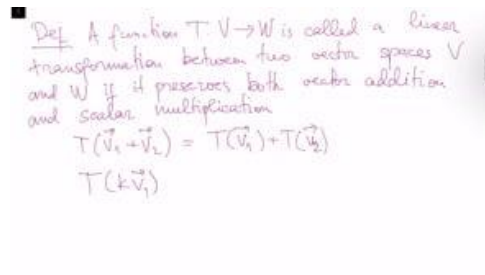 Def A function T: V→W is called a linear
transformation between two vector spaces V
and W if it preserves both vector addition
and scalar multiplication
T(v⃗₁ + v⃗₂) = T(v⃗₁) + T(v⃗₂)
T(kv⃗₁)